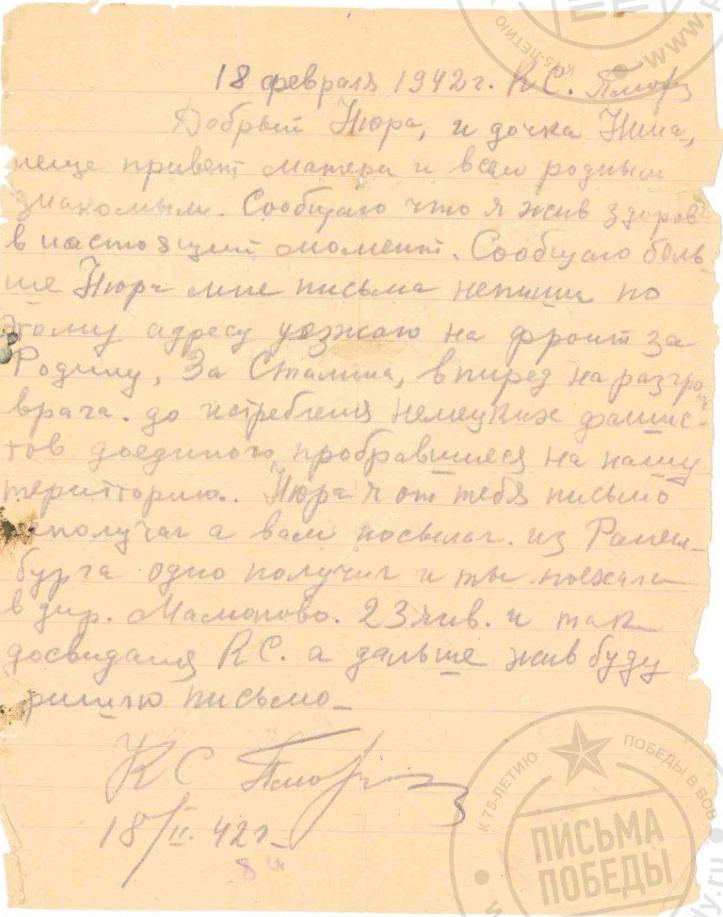 18 февраля 1942 г. К С.
Добрый Нюра, и дочка Нина,
еще привет матери и всем родным
знакомым. Сообщаю что я жив здоров
в настоящий момент. Сообщаю боль
ше Нюра мне письма непиши по
этому адресу уезжаю на фронт за
Родину, За Сталина, вперед на разгро
врага. до истребления немецких фашис-
тов доединого, пробравшиеся на нашу
терииторию. Нюра я от тебя письмо
неполучал а вам посылал. из Ранен-
бурга одно получил и ты поехала
в дир. Мамоново. 23 янв. и так
досвидания К С. а дальше жив буду
пришлю письмо
К С
18/II. 42 г.
К 75-ЛЕТИЮ ПОБЕДЫ В ВОВ
ПИСЬМА
ПОБЕДЫ